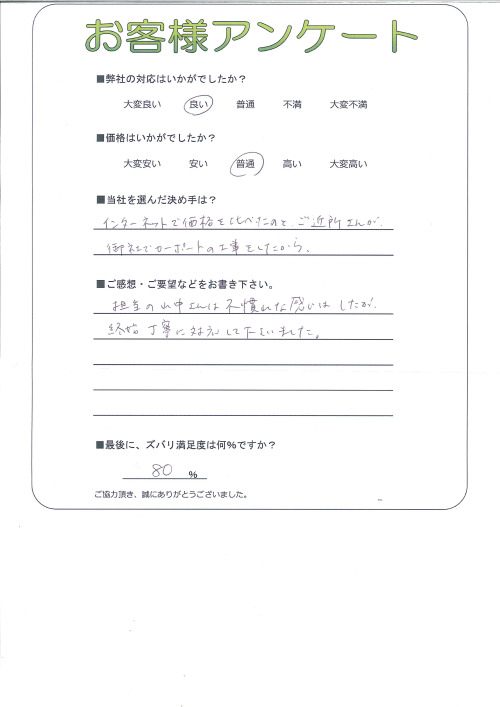 お客様アンケート
■弊社の対応はいかがでしたか?
大変良い 良い 普通 不満 大変不満
■価格はいかがでしたか?
大変安い 安い 普通 高い 大変高い
■当社を選んだ決め手は?
インターネットで価格を比べたのと、ご近所さんが、
御社でカーポートの工事をしたから。
■ご感想・ご要望などをお書き下さい。
担当の山中さんは不慣れな感じはしたが、
終始丁寧に対応して下さいました。
■最後に、ズバリ満足度は何%ですか?
80 %
ご協力頂き、誠にありがとうございました。